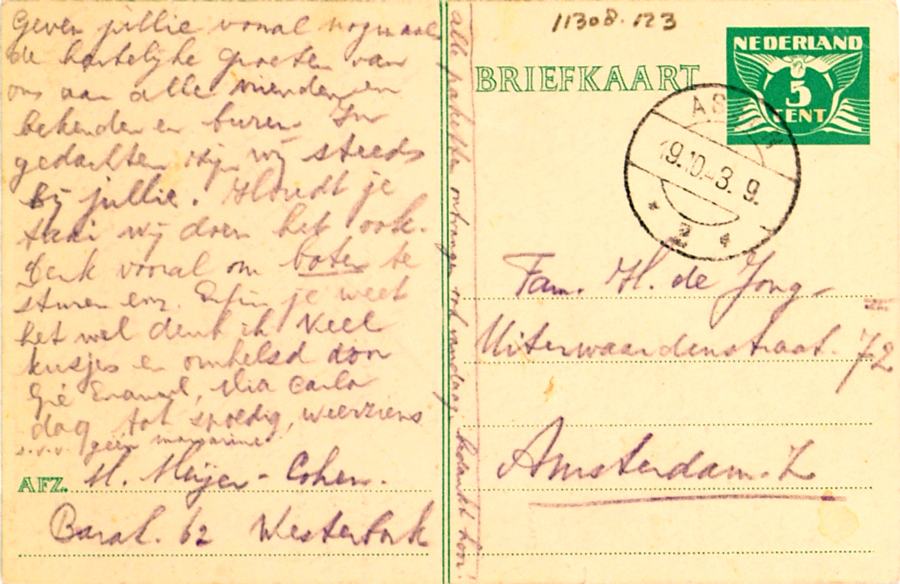 Geven jullie vooral nogmaals
de hartelijke groeten van
ons aan alle vrienden en
bekenden en buren. In
gedachten zijn wij steeds
bij jullie. Houdt je
taai wij doen het ook.
Denk vooral om boter te
sturen enz. Enfin je weet
het wel denk ik Veel
kusjes en omhelsd door
Gé Emanuel, Mia Carla
dag tot spoedig, weerziens
s.v.v. geen margarine
AFZ. M. Meijer-Cohen.
Barak. 62 Westerbork
alle pakketten ontvangen vandaag bedankt hoor!
11308.123
BRIEFKAART
NEDERLAND
5
CENT
AS
19.10.-3. 9.
2
Fam. H. de Jong-
Uiterwaardenstraat. 72
Amsterdam. Z